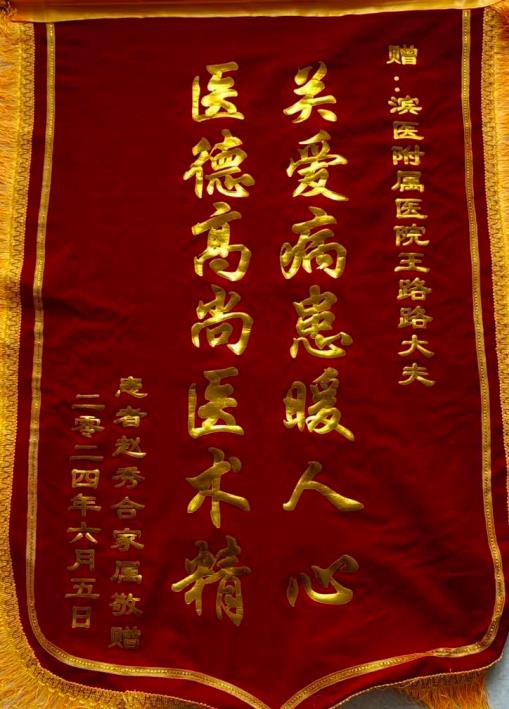 赠：滨医附属医院王路路大夫
关爱病患暖人心
医德高尚医术精
患者赵秀合家属敬赠
二零二四年六月五日